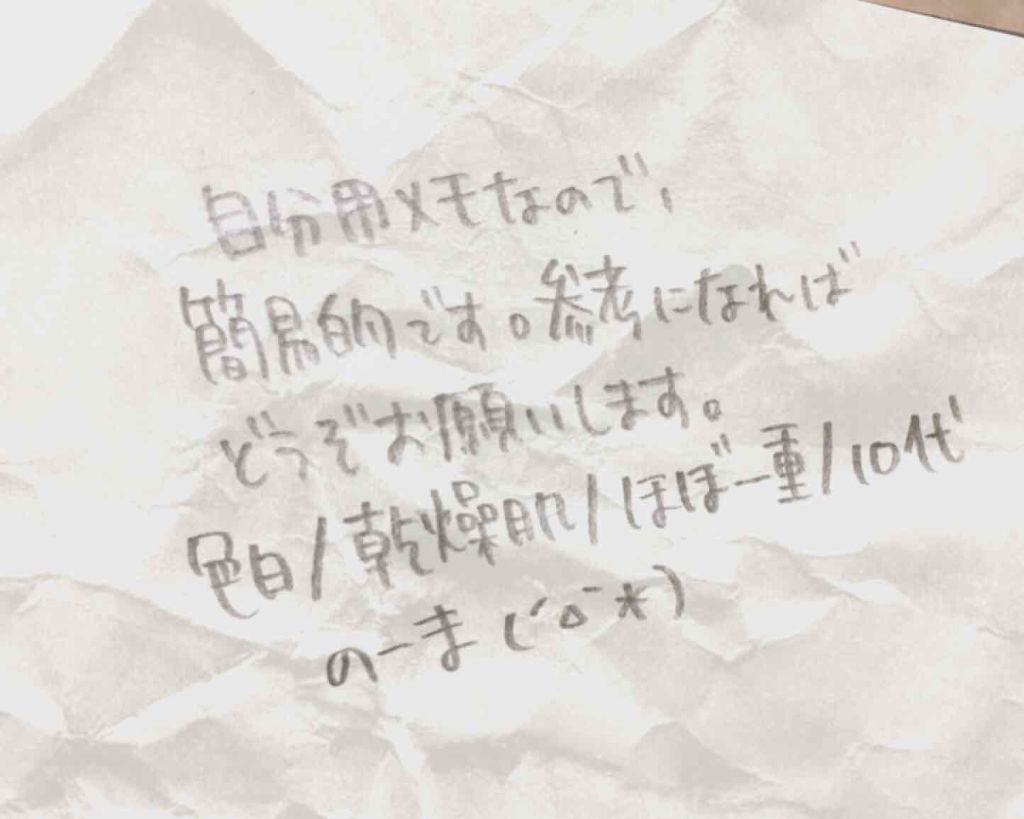 自分用メモなので、
簡易的です。参考になれば
どうぞお願いします。
色白/乾燥肌/ほぼ一重/10代
のーま(´δ｀*)